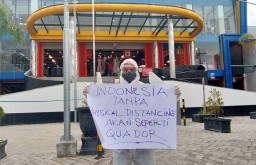 INDONESIA
TANPA
FISIKAL DISTANCING
AKAN SEPERTI
QUADOR